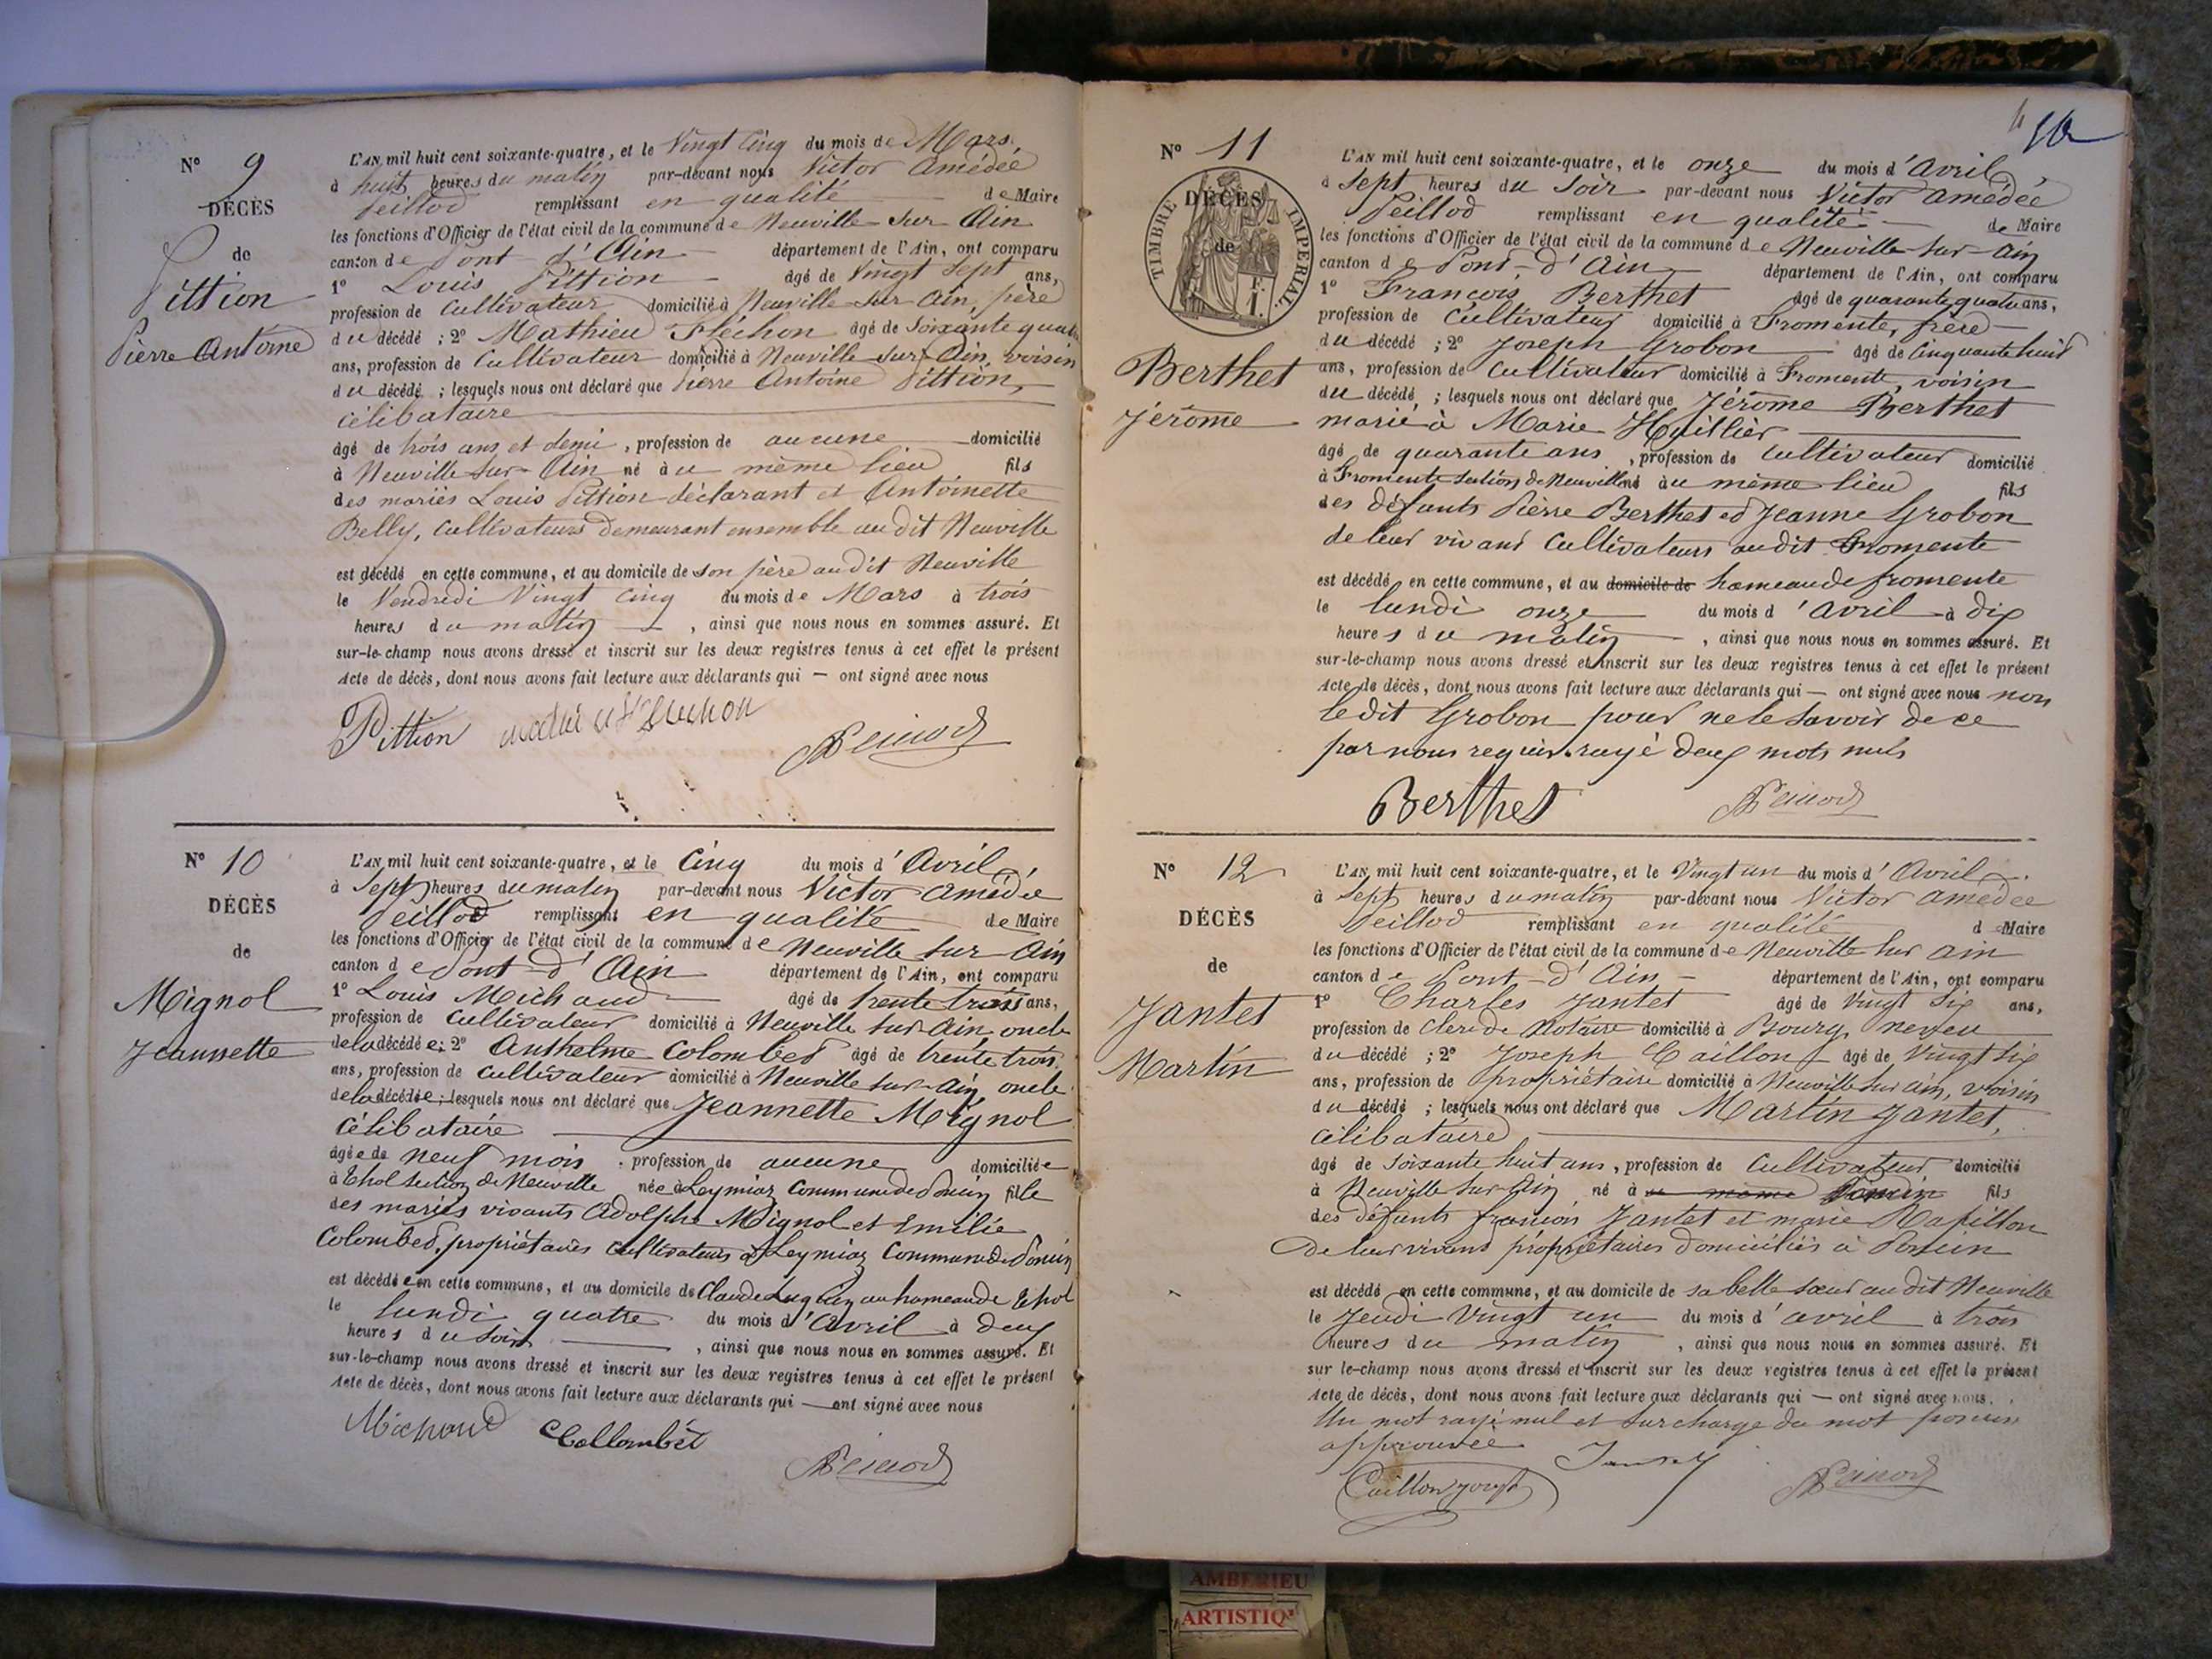 N° 9
DÉCÈS
de
Pittion
Pierre Antoine
L'AN mil huit cent soixante-quatre, et le Vingt Cinq du mois de Mars,
à huit heures du matin par-devant nous Victor Amédée
Peillod remplissant en qualité de Maire
les fonctions d'Officier de l'état civil de la commune de Neuville sur Ain
canton de Pont d'Ain département de l'Ain, ont comparu
1° Louis Pittion âgé de Vingt Sept ans,
profession de Cultivateur domicilié à Neuville sur Ain, père
du décédé ; 2° Mathieu Fléchon âgé de Soixante quatre
ans, profession de Cultivateur domicilié à Neuville sur Ain, voisin
du décédé ; lesquels nous ont déclaré que Pierre Antoine Pittion,
célibataire
âgé de trois ans et demi, profession de aucune domicilié
à Neuville sur Ain né à u même lieu fils
des mariés Louis Pittion déclarant et Antoinette
Belly, Cultivateurs demeurant ensemble au dit Neuville
est décédé en cette commune, et au domicile de son père au dit Neuville
le Vendredi Vingt Cinq du mois de Mars à trois
heures du matin, ainsi que nous nous en sommes assuré. Et
sur-le-champ nous avons dressé et inscrit sur les deux registres tenus à cet effet le présent
Acte de décès, dont nous avons fait lecture aux déclarants qui — ont signé avec nous
Pittion
N° 10
DÉCÈS
de
Mignol
Jeannette
L'AN mil huit cent soixante-quatre, et le Cinq du mois d'Avril,
à Sept heures du matin par-devant nous Victor Amédée
Peillod remplissant en qualité de Maire
les fonctions d'Officier de l'état civil de la commune de Neuville sur Ain
canton de Pont d'Ain département de l'Ain, ont comparu
1° Louis Michaud âgé de trente trois ans,
profession de Cultivateur domicilié à Neuville sur Ain, oncle
de la décédée ; 2° Anthelme Colombet âgé de trente trois
ans, profession de Cultivateur domicilié à Neuville sur Ain, oncle
de la décédée ; lesquels nous ont déclaré que Jeannette Mignol
célibataire
âgée de neuf mois, profession de aucune domiciliée
à Thol section de Neuville née à Leymiaz Commune de Poncin fille
des mariés vivants Adolphe Mignol et Emilie
Colombet, propriétaires cultivateurs à Leymiaz Commune de Poncin
est décédée en cette commune, et au domicile de Claude au hameau de Thol
le lundi quatre du mois d'Avril à deux
heures du soir, ainsi que nous nous en sommes assuré. Et
sur-le-champ nous avons dressé et inscrit sur les deux registres tenus à cet effet le présent
Acte de décès, dont nous avons fait lecture aux déclarants qui — ont signé avec nous
Michaud Collombét
N° 11
DÉCÈS
de
TIMBRE IMPERIAL
Berthet
Jérôme
L'AN mil huit cent soixante-quatre, et le onze du mois d'Avril
à Sept heures du Soir par-devant nous Victor Amédée
Peillod remplissant en qualité de Maire
les fonctions d'Officier de l'état civil de la commune de Neuville sur Ain
canton de Pont-d'Ain département de l'Ain, ont comparu
1° François Berthet âgé de quarante quatre ans,
profession de Cultivateur domicilié à Fromente, frère
du décédé ; 2° Joseph Grobon âgé de Cinquante huit
ans, profession de Cultivateur domicilié à Fromente, voisin
du décédé ; lesquels nous ont déclaré que Jérôme Berthet
marié à Marie Huillier
âgé de quarante ans, profession de cultivateur domicilié
à Fromente section de Neuville né à u même lieu fils
des défunts Pierre Berthet et Jeanne Grobon
de leur vivant Cultivateurs audit Fromente
est décédé en cette commune, et au domicile de hameau de fromente
le lundi onze du mois d'avril à dix
heures du matin, ainsi que nous nous en sommes assuré. Et
sur-le-champ nous avons dressé et inscrit sur les deux registres tenus à cet effet le présent
Acte de décès, dont nous avons fait lecture aux déclarants qui — ont signé avec nous non
le dit Grobon pour ne le savoir de ce
par nous requis. rayé deux mots nuls
Berthet
N° 12
DÉCÈS
de
Jantet
Martin
L'AN mil huit cent soixante-quatre, et le Vingt un du mois d'Avril
à Sept heures du matin par-devant nous Victor Amédée
Peillod remplissant en qualité d Maire
les fonctions d'Officier de l'état civil de la commune de Neuville sur ain
canton de Pont-d'Ain département de l'Ain, ont comparu
1° Charles Jantet âgé de Vingt Six ans,
profession de Clerc de Notaire domicilié à Bourg, neveu
du décédé ; 2° Joseph Caillon âgé de Vingt Six
ans, profession de propriétaire domicilié à Neuville sur ain, voisin
du décédé ; lesquels nous ont déclaré que Martin Jantet,
célibataire
âgé de Soixante huit ans, profession de Cultivateur domicilié
à Neuville sur Ain né à u même Poncin fils
des défunts françois Jantet et marie Rapillon
de leur vivant propriétaires domiciliés à Poncin
est décédé en cette commune, et au domicile de sa belle sœur au dit Neuville
le Jeudi Vingt un du mois d'avril à trois
heures du matin, ainsi que nous nous en sommes assuré. Et
sur le-champ nous avons dressé et inscrit sur les deux registres tenus à cet effet le présent
Acte de décès, dont nous avons fait lecture aux déclarants qui — ont signé avec nous.
Un mot rayé nul et surcharge du mot poncin
approuvée
AMBERIEU
ARTISTIQ